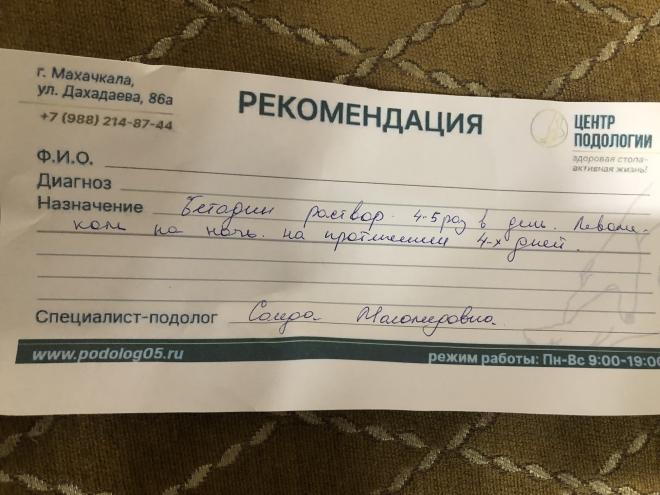 г. Махачкала,
ул. Дахадаева, 86а
+7 (988) 214-87-44
РЕКОМЕНДАЦИЯ
ЦЕНТР
ПОДОЛОГИИ
здоровая стопа-
активная жизнь!
Ф.И.О.
Диагноз
Назначение Бетадин раствор 4-5 раз в день. Левоме-
коль на ночь. на протяжении 4-х дней.
Специалист-подолог Саида Магомедовна
www.podolog05.ru
режим работы: Пн-Вс 9:00-19:00